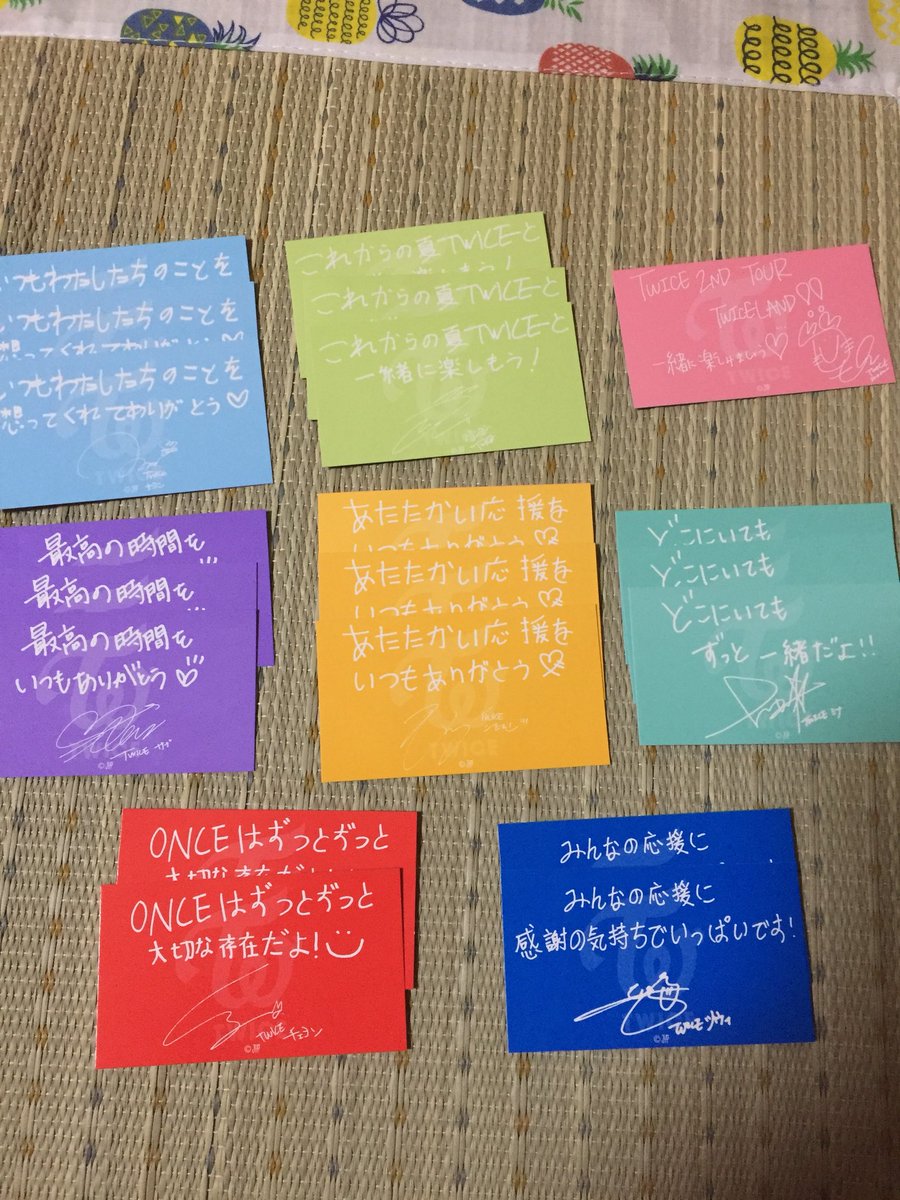 いつもわたしたちのことを
いつもわたしたちのことを
いつもわたしたちのことを
想ってくれてありがとう♡
TWICE
これからの夏TWICEと
これからの夏TWICEと
これからの夏TWICEと
一緒に楽しもう!
TWICE
TWICE 2ND TOUR
TWICELAND♡♡
一緒に楽しみましょう♡
TWICE
最高の時間を
最高の時間を
最高の時間を
いつもありがとう♡
TWICE サナ
あたたかい応援を
いつもありがとう
あたたかい応援を
いつもありがとう
あたたかい応援を
いつもありがとう♡
TWICE
TWICE
どこにいても
どこにいても
どこにいても
ずっと一緒だよ!!
TWICE ミナ
ONCEはずっとずっと
大切な存在だよ!
ONCEはずっとずっと
大切な存在だよ!
TWICE チェヨン
みんなの応援に
みんなの応援に
感謝の気持ちでいっぱいです!
TWICE ツウィ